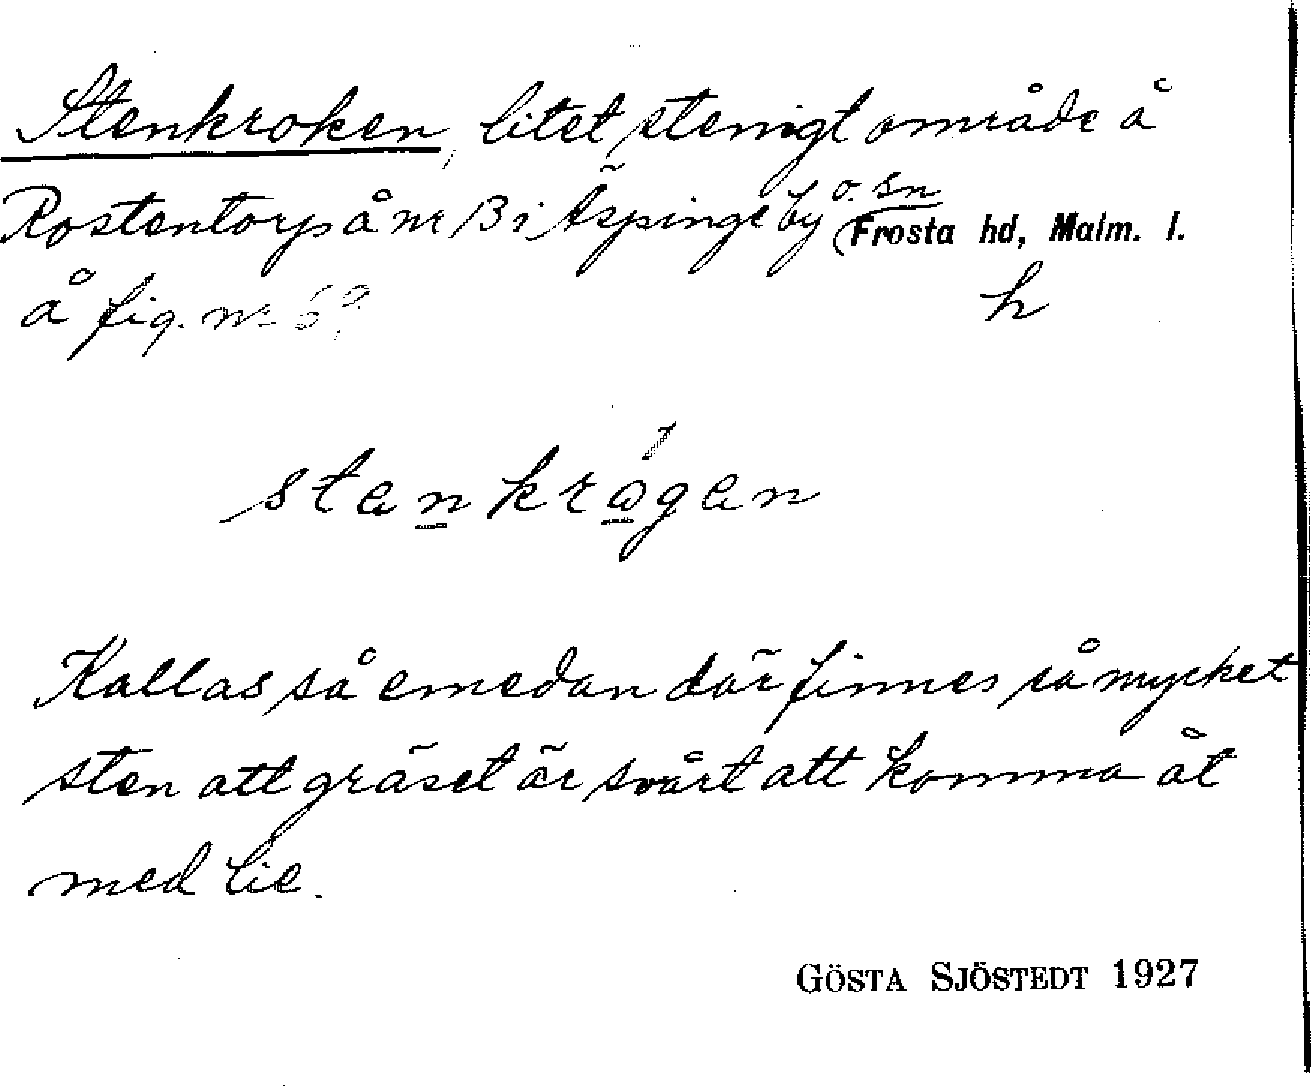 Stenkroken, litet stenigt område å
Rostentorp å nr 13 i Äspinge by o. sn
(Frosta hd, Malm. l.
å fig. nr
h
stenkrogen
Kallas så emedan där finnes så mycket
sten att gräset är svårt att komma åt
med lie.
GÖSTA SJÖSTEDT 1927